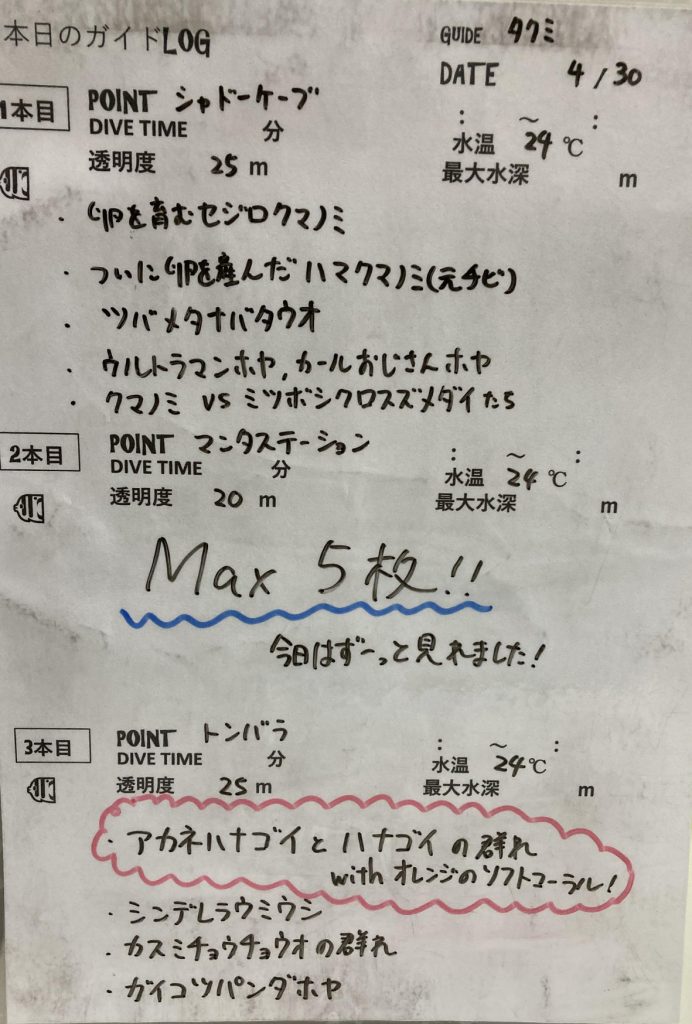 本日のガイドLOG
GUIDE タクミ
DATE 4/30
1本目
POINT シャドーケーブ
DIVE TIME 分
: ~ :
水温 24℃
透明度 25 m
最大水深 m
・卵を育むセジロクマノミ
・ついに卵を産んだハマクマノミ(元チビ)
・ツバメタナバタウオ
・ウルトラマンホヤ,カールおじさんホヤ
・クマノミ VS ミツボシクロスズメダイたち
2本目
POINT マンタステーション
DIVE TIME 分
: ~ :
水温 24℃
透明度 20 m
最大水深 m
Max 5枚!!
今日はずーっと見れました!
3本目
POINT トンバラ
DIVE TIME 分
: ~ :
水温 24℃
透明度 25 m
最大水深 m
・アカネハナゴイとハナゴイの群れ
with オレンジのソフトコーラル!
・シンデレラウミウシ
・カスミチョウチョウオの群れ
・ガイコツパンダホヤ